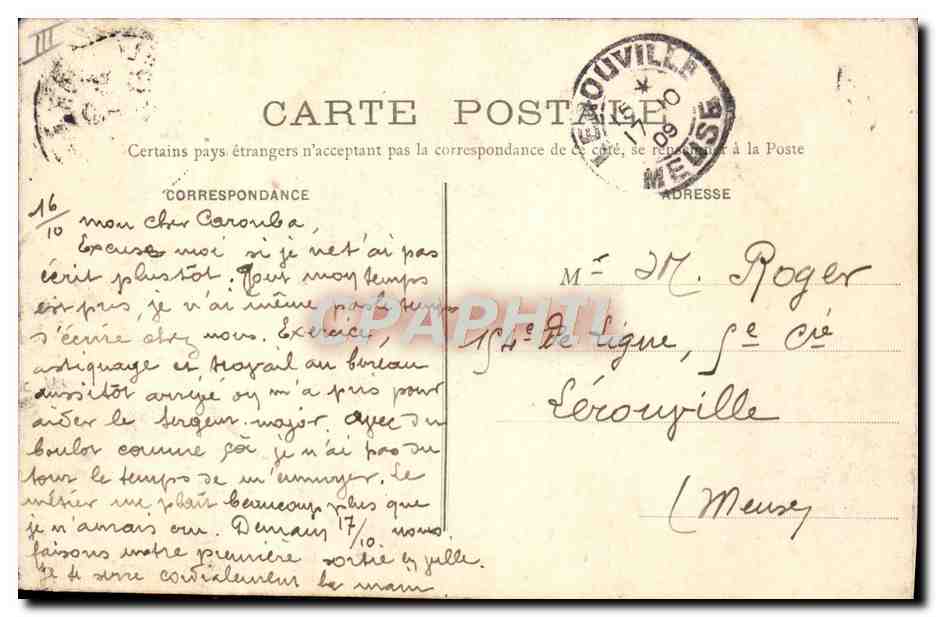 III
CARTE POSTALE
Certains pays étrangers n'acceptant pas la correspondance de ce côté, se renseigner à la Poste
LEROUVILLE
15 * 17-10 09
MEUSE
CORRESPONDANCE
ADRESSE
16/10 mon cher Carouba,
Excuse moi si je ne t'ai pas
écrit plustôt. Tout mon temps
est pris, je n'ai même pas le temps
d'écrire chez nous. Exercice,
astiquage et travail au bureau
aussitôt arrivé on m'a pris pour
aider le sergent-major. Avec du
boulot comme çà je n'ai pas du
tout le temps de m'ennuyer. Le
métier me plait beaucoup plus que
je n'aurais cru. Demain 17/10 nous
faisons notre première sortie en ville.
Je te serre cordialement la main
M M. Roger
154e de Ligne, 5e Cie
Lérouville
(Meuse)
CPAPHIL